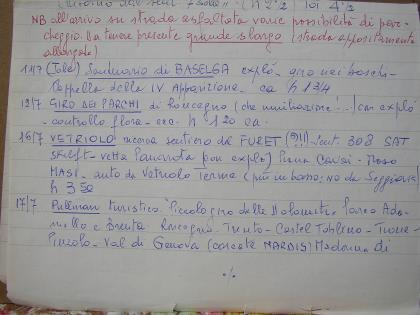 NB all'arrivo su strada asfaltata varie possibilità di par-
cheggio. Da tenere presente grande slargo (strada appositamente
allargata)
11/7 (Sole) Santuario di BASELGA explò - giro nei boschi -
Cappella della IV Apparizione - ca h 1 3/4
12/7 GIRO DEI PARCHI di Roncegno (che umiliazione!...) con explò
- controllo flora - ecc. h 1 20 ca.
16/7 VETRIOLO ricerca sentiero da FURET (9!!!) - sent. 308 SAT
Skilift - vetta Panarotta (con explò) Pizua Cavai - Maso
MASI - auto da Vetriolo Terme (più in basso: No da Seggiovia
h 3 50
17/7 Pullman turistico "Piccolo giro delle Dolomiti" Parco Ada-
mello e Brenta Roncegno - Trento - Castel Toblino - Tione -
Pinzolo - Val di Genova (cascate NARDIS) Madonna di
./.